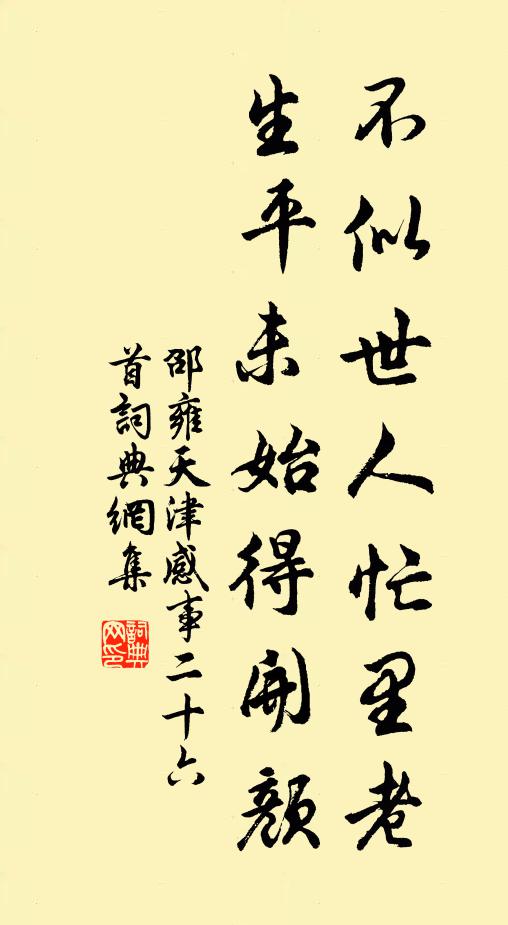 不似世人忙里老
生平未始得開顏
邵雍天津感事二十六
首詞典網集
詞典
网印